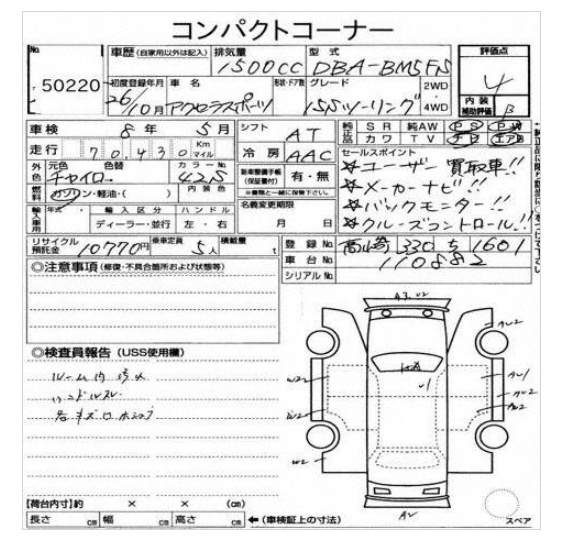 コンパクトコーナー
No. 50220
車歴 (自家用以外は記入) 排気量 型式 評価点
1500CC DBA-BM5FS 4
初度登録年月 車名 形状・ドア数 グレード 2WD 4WD 内装 補助評価 B
26/10月 アクセラスポーツ 15Sツーリング
車検 8年 5月 シフト AT 純正品 SR 純AW PS PW
カワ TV ナビ エアB
走行 70,430 Km マイル 冷房 AAC セールスポイント
外色 元色 色替 カラーNo. 新車整備手帳 (保証書付) 有・無 ☆ユーザー買取車!!
チャイロ 42S ※書類と一緒に保管下さい。 ☆メーカーナビ!!
燃料 ガソリン・軽油・( ) 内装色 名義変更期限 ☆バックモニター!!
輸入車用 年式 輸入区分 ハンドル 月 日 ☆クルーズコントロール!!
ディーラー・並行 左・右
リサイクル預託金 10770円 乗車定員 5人 積載量 t 登録No. 高崎 330 ち 1601
車台No. 110882
シリアルNo.
◎注意事項 (修復・不具合箇所および状態等)
◎検査員報告 (USS使用欄)
ルーム内
ハンドルスレ
各キズ
A2
W2
W2
W2
AU1
AU2
A2
スペア
【荷台内寸】約 × × (cm)
長さ cm 幅 cm 高さ cm ←(車検証上の寸法)